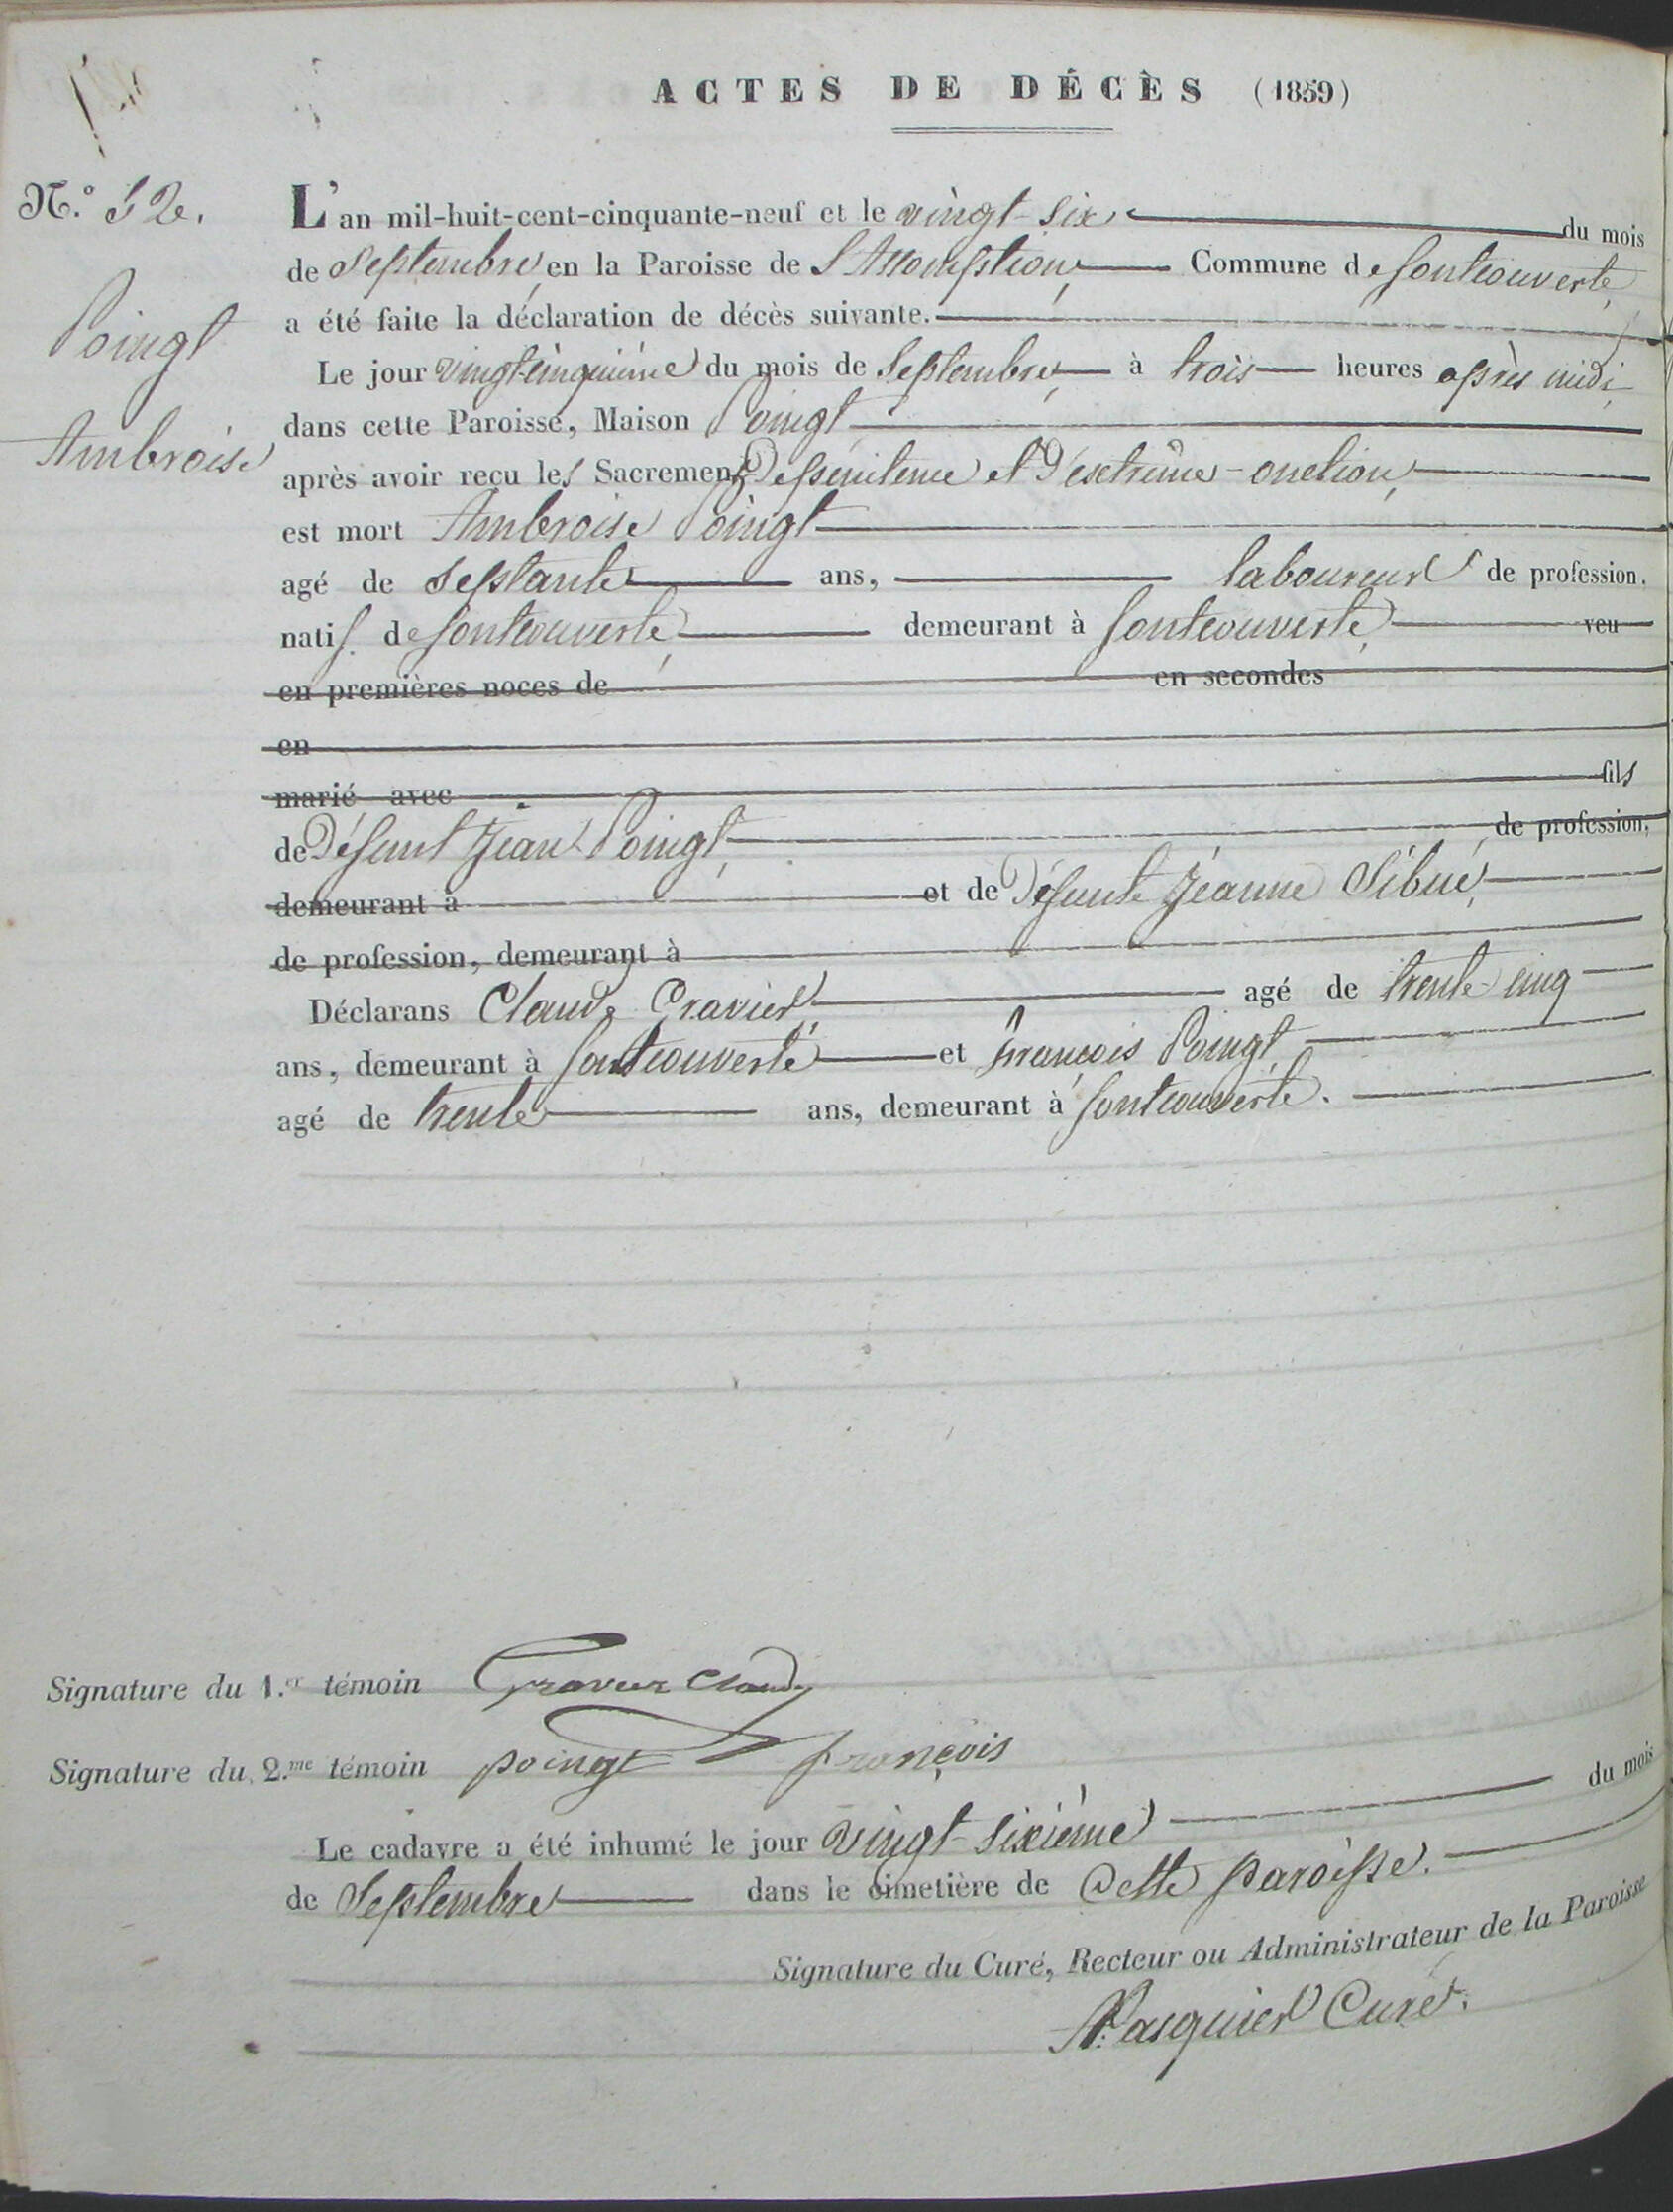 ACTES DE DÉCÈS (1859)
N.º 52.
Poingt
Ambroise
L'an mil-huit-cent-cinquante-neuf et le vingt-six du mois
de Septembre, en la Paroisse de l'Assomption, Commune de fontcouverte,
a été faite la déclaration de décès suivante.
Le jour vingt-cinquième du mois de Septembre, à trois heures après midi,
dans cette Paroisse, Maison Poingt
après avoir reçu les Sacremens De pénitence et D'extrême-onction,
est mort Ambroise Poingt
agé de Septante ans, laboureur de profession.
natif. de fontcouverte, demeurant à fontcouverte, veu
en premières noces de en secondes
en
marié avec fils
de Défunt Jean Poingt, de profession,
demeurant à et de Défunte Jéanne Sibué,
de profession, demeurant à
Déclarans Claude Cravier agé de trente-cinq
ans, demeurant à fontcouverte et françois Poingt
agé de trente ans, demeurant à fontcouverte.
Signature du 1.er témoin Cravier Claude
Signature du 2.me témoin poingt françois
Le cadavre a été inhumé le jour vingt-sixième du mois
de Septembre dans le cimetière de Cette paroisse.
Signature du Curé, Recteur ou Administrateur de la Paroisse
Pasquier Curé.